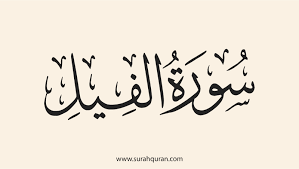 سُورَةُ الفِيلِ
www.surahquran.com